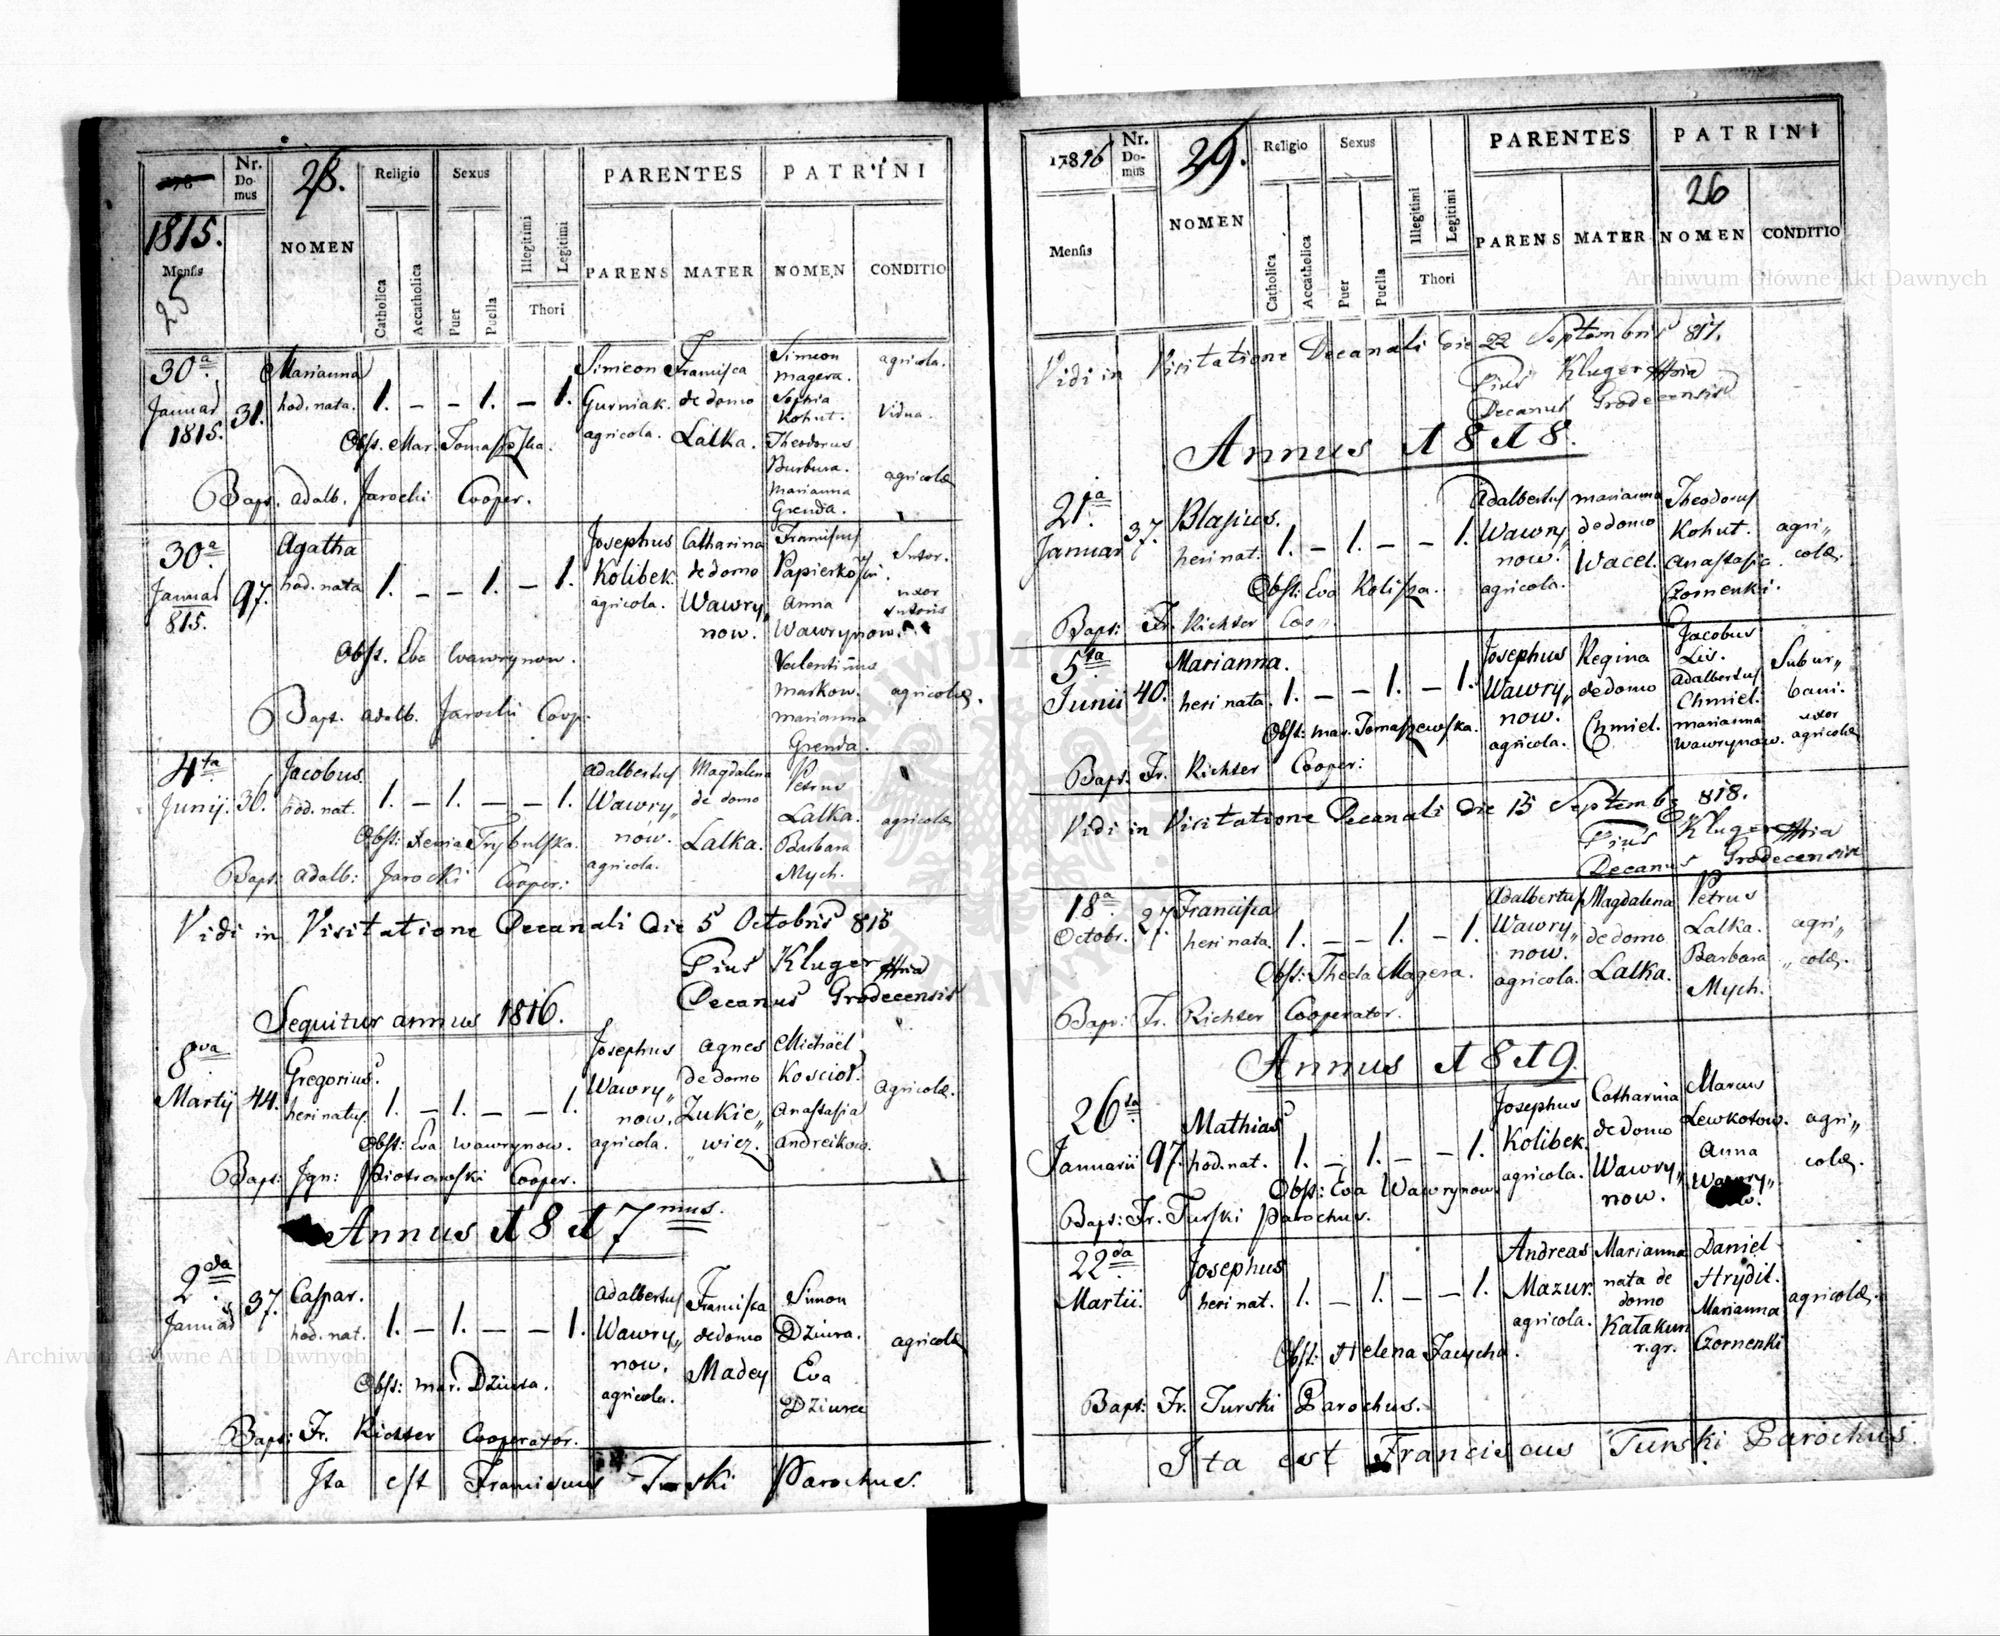 1815.
Nr. Domus
28.
NOMEN
Religio
Catholica
Accatholica
Sexus
Puer
Puella
Illegitimi
Legitimi
Thori
PARENTES
PARENS
MATER
PATRINI
NOMEN
CONDITIO
Mensis
25
30a Januar 1815.
31.
Marianna hod. nata.
1. – – 1. – 1.
Simeon Gurniak. agricola.
Francisca de domo Lalka.
Simeon Magera. Sophia Kohut. Theodorus Burbura. Marianna Grenda.
agricola. Vidua. agricolæ
Obst. Mar. Tomaszewska.
Bapt. Adalb. Jarocki Cooper.
30a Januar 815.
97.
Agatha hod. nata
1. – – 1. – 1.
Josephus Kolibek. agricola.
Catharina de domo Wawry„ now.
Franciscus Papierkowski. Anna Wawrynow. Valentinus Markow. Marianna Grenda.
Sutor. uxor sutoris agricolæ.
Obst. Eva Wawrynow.
Bapt. Adalb. Jarocki Coop.
4ta Junij.
36.
Jacobus. hod. nat.
1. – 1. – – 1.
Adalbertus Wawry„ now. agricola.
Magdalena de domo Lalka.
Petrus Lalka. Barbara Mych.
agricolæ
Obst: Trybulska.
Bapt: Adalb: Jarocki Cooper:
Vidi in Visitatione Decanali die 5 Octobris 815
Pius Kluger
Decanus Grodecensis
Sequitur annus 1816.
8va Martij
44.
Gregorius. heri natus.
1. – 1. – – 1.
Josephus Wawry„ now. agricola.
Agnes de domo Zukie„ „wicz.
Michaël Koscioł. Anastasia Andreikow.
Agricolæ.
Obst: Eva Wawrynow.
Bapt: Ign: Piotrowski Cooper.
Annus 1817mus.
2da Januar
37.
Caspar. hod. nat.
1. – 1. – – 1.
Adalbertus Wawry„ now. agricola.
Francisca de domo Madey
Simon Dziura. Eva Dziura
agricolæ
Obst: Mar. Dziura.
Bapt: Fr. Richter Cooperator.
Ita est Franciscus Turski Parochus.
17816
Nr. Domus
29.
NOMEN
Religio
Catholica
Accatholica
Sexus
Puer
Puella
Illegitimi
Legitimi
Thori
PARENTES
PARENS
MATER
PATRINI
26
NOMEN
CONDITIO
Mensis
Vidi in Visitatione Decanali die 22 Septembris 817.
Pius Kluger
Decanus Grodecensis
Annus 1818.
21a Januar
37.
Blasius. heri nat.
1. – 1. – – 1.
Adalbertus Wawry„ now. agricola.
Marianna de domo Wacel.
Theodorus Kohut. Anastasia Czornenki.
agri„ colæ.
Obst: Eva Koliszka.
Bapt: Fr. Richter Coop.
5ta Junii
40.
Marianna. heri nata.
1. – – 1. – 1.
Josephus Wawry„ now. agricola.
Regina de domo Chmiel.
Jacobus Lis. Adalbertus Chmiel. Marianna Wawrynow.
Subur„ bani. uxor agricolæ
Obst: Mar. Tomaszewska.
Bapt. Fr. Richter Cooper:
Vidi in Visitatione Decanali die 15 Septemb 818.
Pius Kluger
Decanus Grodecensis
18a Octobr.
27.
Francisca heri nata.
1. – – 1. – 1.
Adalbertus Wawry„ now. agricola.
Magdalena de domo Lalka.
Petrus Lalka. Barbara Mych.
agri„ „colæ.
Obst: Thecla Magera.
Bapt: Fr. Richter Cooperator.
Annus 1819.
26ta Januarii
97.
Mathias hod. nat.
1. – 1. – – 1.
Josephus Kolibek. agricola.
Catharina de domo Wawry„ now.
Marcus Lewkotow. Anna Wawry„
agri„ colæ.
Obst: Eva Wawrynow
Bapt: Fr. Turski Parochus.
22da Martii.
Josephus heri nat.
1. – 1. – – 1.
Andreas Mazur. agricola.
Marianna nata de domo Katakun r. gr.
Daniel Hrydil. Marianna Czornenki
agricolæ.
Obst: Helena Jacycha.
Bapt: Fr. Turski Parochus.
Ita est Franciscus Turski Parochus.
Archiwum Główne Akt Dawnych
Archiwum Główne Akt Dawnych
ARCHIWUM GŁÓWNE AKT DAWNYCH